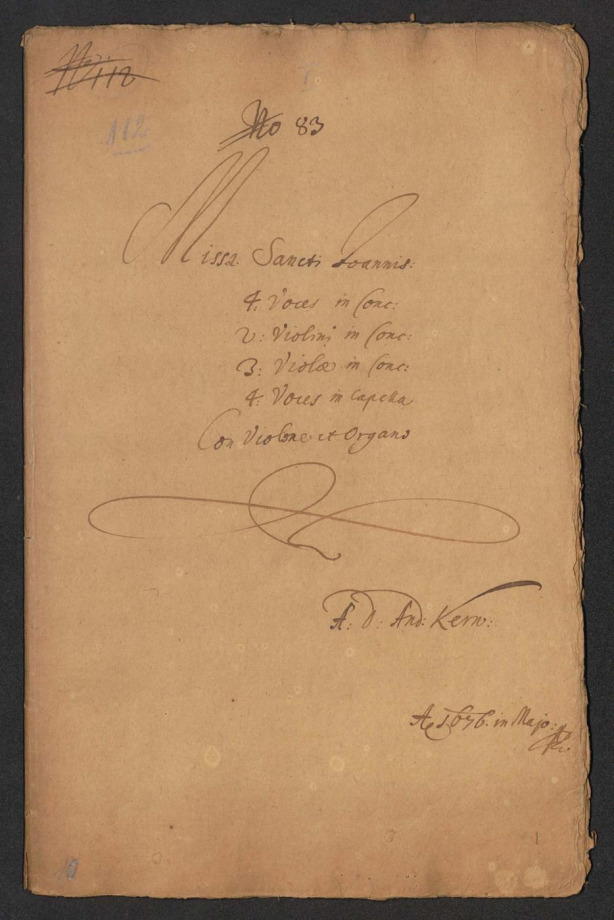 No 112
112
No 83
Missa Sancti Joannis:
4: Voces in Conc:
2: Violini in Conc:
3: Violæ in Conc:
4: Voces in Capella
Con Violone et Organo
A: D: And: Kern:
Ao 1676. in Majo: